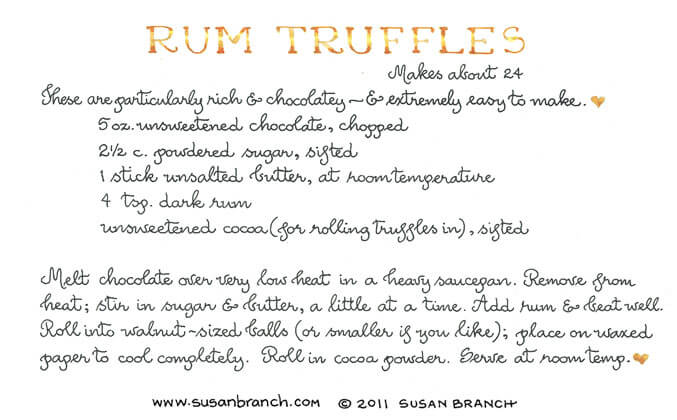 RUM TRUFFLES
Makes about 24
These are particularly rich & chocolatey ~ & extremely easy to make.
5 oz. unsweetened chocolate, chopped
2 1/2 c. powdered sugar, sifted
1 stick unsalted butter, at room temperature
4 tsp. dark rum
unsweetened cocoa (for rolling truffles in), sifted
Melt chocolate over very low heat in a heavy saucepan. Remove from
heat; stir in sugar & butter, a little at a time. Add rum & beat well.
Roll into walnut-sized balls (or smaller if you like); place on waxed
paper to cool completely. Roll in cocoa powder. Serve at room temp.
www.susanbranch.com © 2011 SUSAN BRANCH